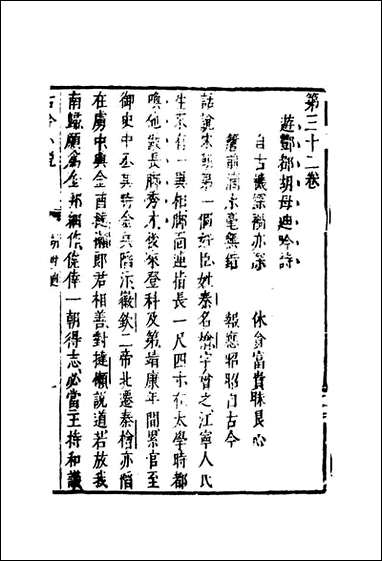 第三十二卷
遊酆都胡母迪吟詩
自古機深禍亦深　休貪富貴昧良心
簷前滴水毫無錯　報應昭昭自古今
話說宋朝第一個奸臣姓秦名檜字會之江寧人氏
生來有一異相脚面連指長一尺四寸在太學時都
喚他做長脚秀才後來登科及第靖康年間累官至
御史中丞其時金兵陷汴徽欽二帝北遷秦檜亦陷
在虜中與金酋撻懶郎君相善對撻懶說道若放我
南歸願爲金邦細作僥倖一朝得志必當主持和議
古今小說